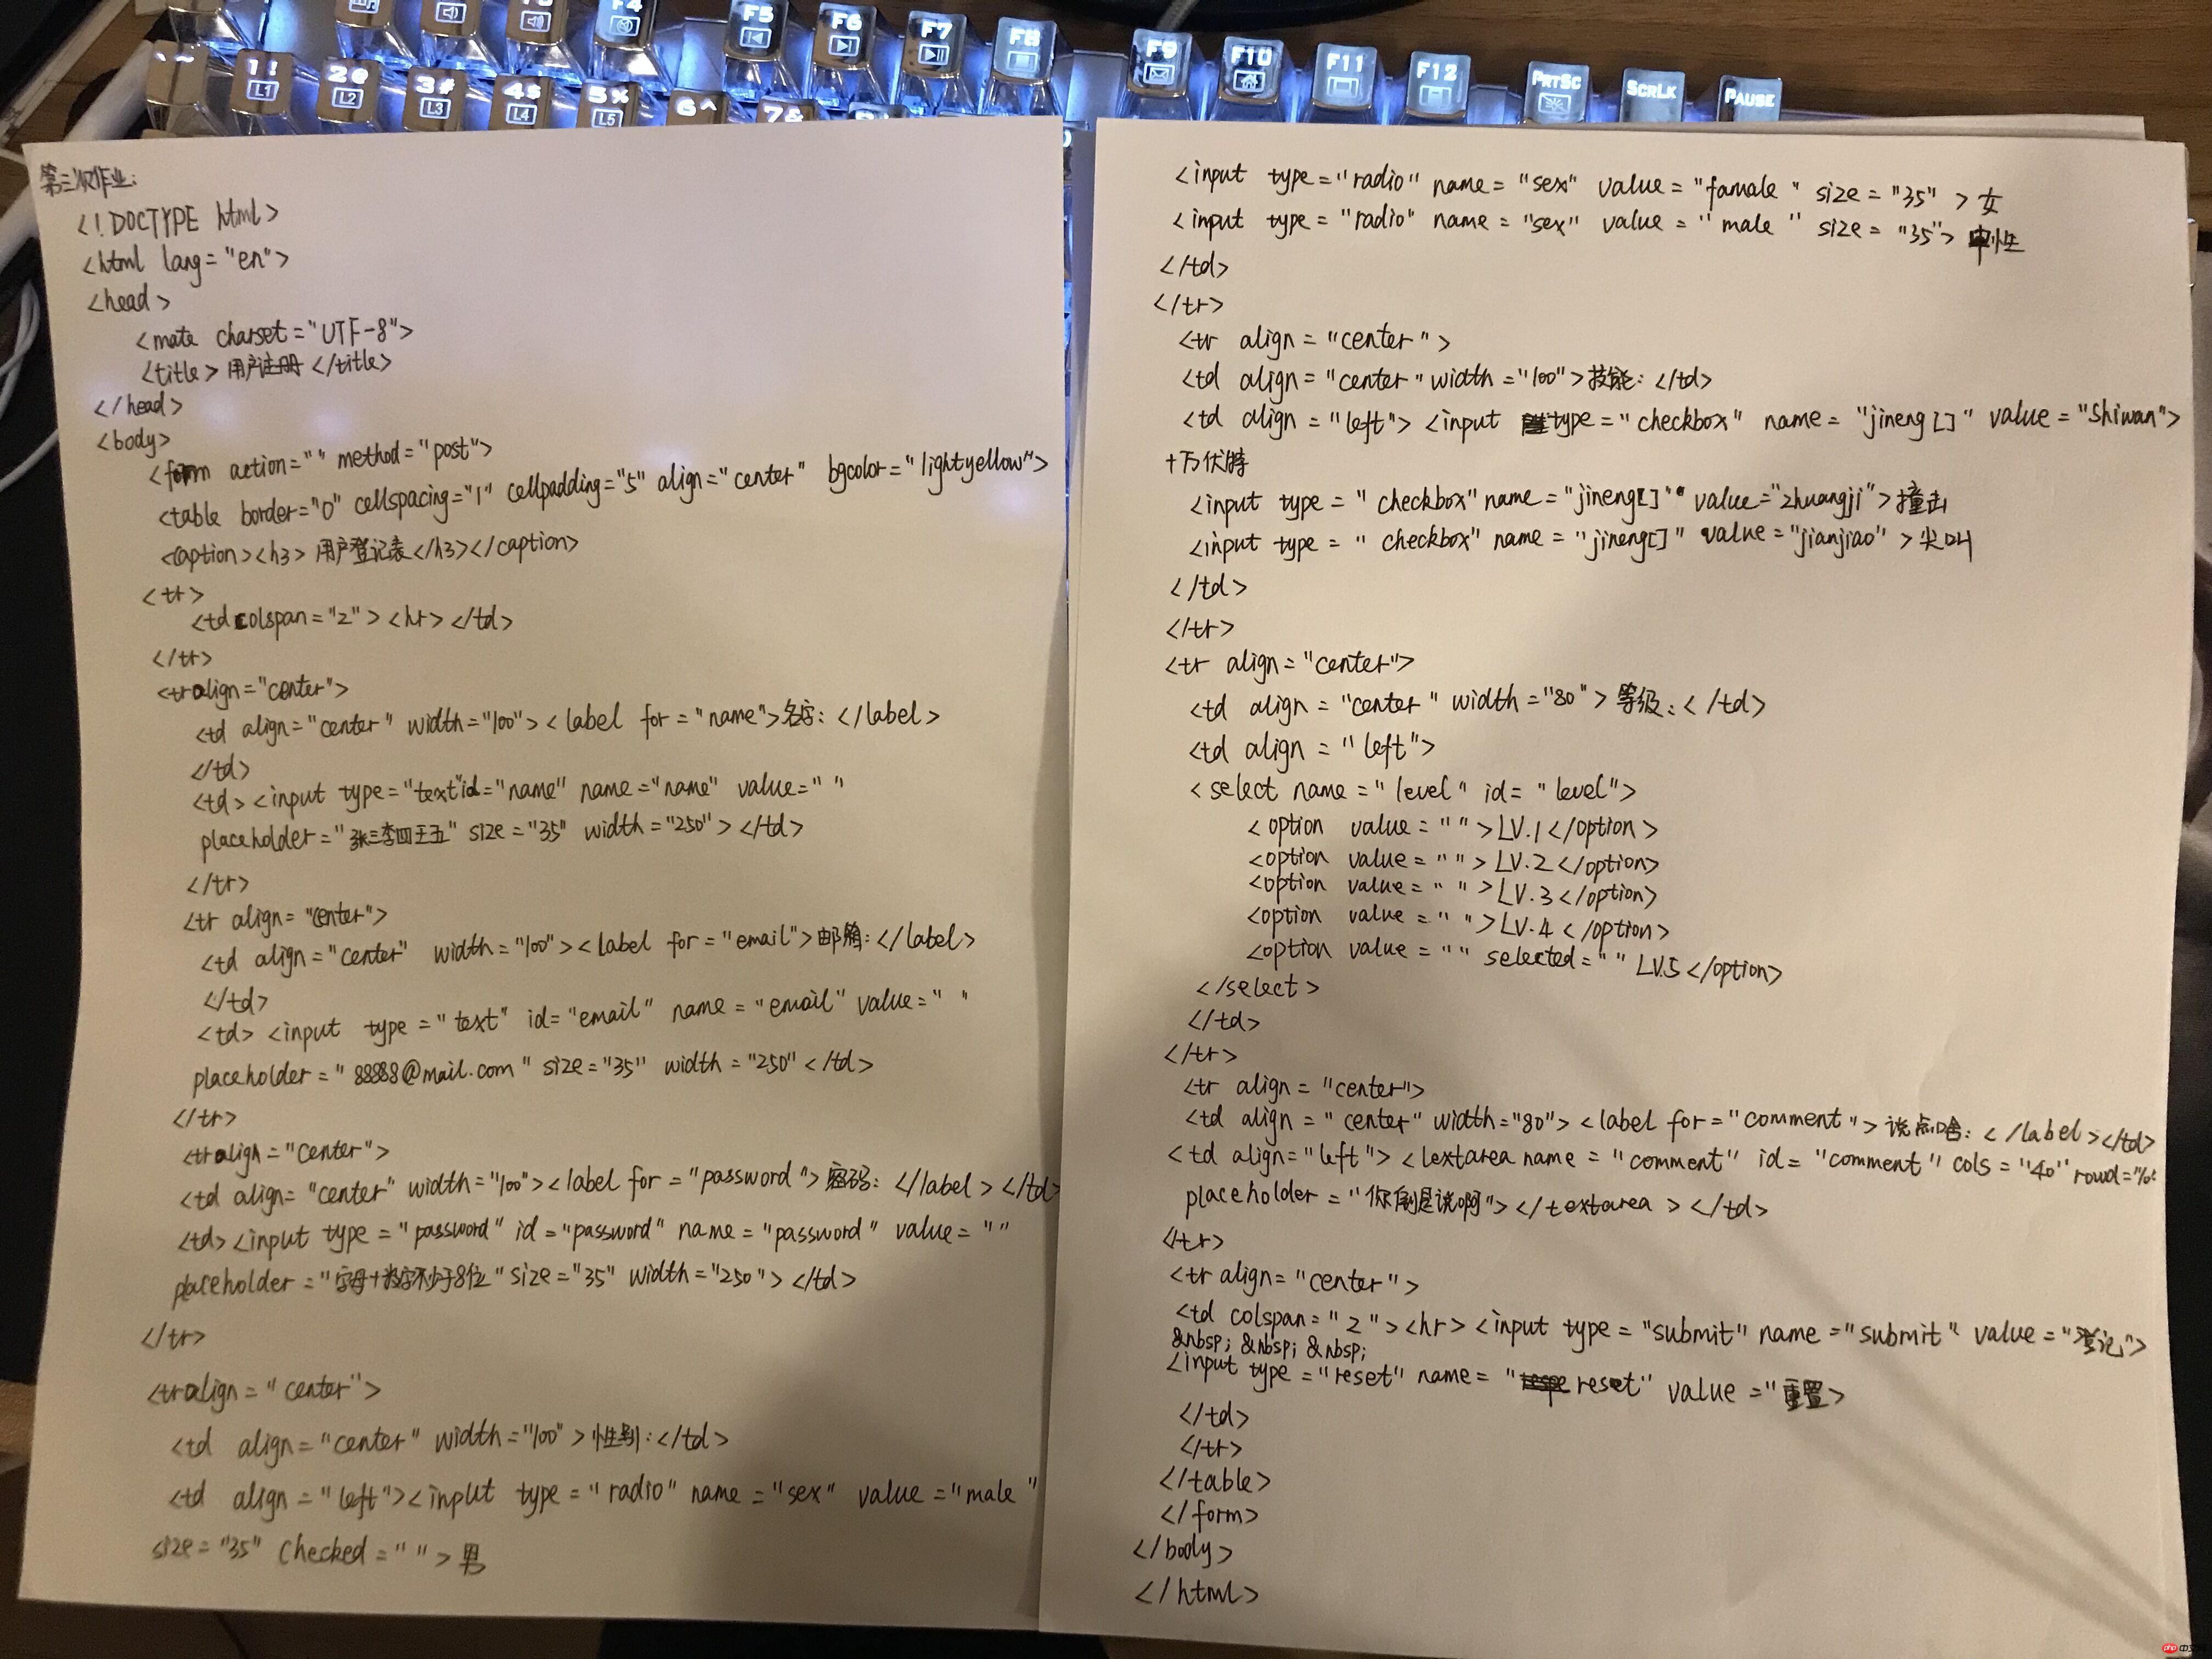 1!
L1
2@
L2
3#
L3
4$
L4
5%
L5
6^
7&
F4
F5
F6
F7
F8
F9
F10
F11
F12
PRTSC
SCRLK
PAUSE
第三次作业:
<!DOCTYPE html>
<html lang="en">
<head>
<mate charset="UTF-8">
<title>用户注册</title>
</head>
<body>
<form action="" method="post">
<table border="0" cellspacing="1" cellpadding="5" align="center" bgcolor="lightyellow">
<caption><h3>用户登记表</h3></caption>
<tr>
<td colspan="2"><hr></td>
</tr>
<tr align="center">
<td align="center" width="100"><label for="name">名字:</label>
</td>
<td><input type="text" id="name" name="name" value=""
placeholder="张三李四王五" size="35" width="250"></td>
</tr>
<tr align="center">
<td align="center" width="100"><label for="email">邮箱:</label>
</td>
<td><input type="text" id="email" name="email" value=""
placeholder="88888@mail.com" size="35" width="250"</td>
</tr>
<tr align="center">
<td align="center" width="100"><label for="password">密码:</label></td>
<td><input type="password" id="password" name="password" value=""
placeholder="字母+数字不少于8位" size="35" width="250"></td>
</tr>
<tr align="center">
<td align="center" width="100">性别:</td>
<td align="left"><input type="radio" name="sex" value="male"
size="35" checked="">男
<input type="radio" name="sex" value="famale" size="35">女
<input type="radio" name="sex" value="male" size="35">中性
</td>
</tr>
<tr align="center">
<td align="center" width="100">技能:</td>
<td align="left"><input type="checkbox" name="jineng[]" value="shiwan">
十万伏特
<input type="checkbox" name="jineng[]" value="zhuangji">撞击
<input type="checkbox" name="jineng[]" value="jianjiao">尖叫
</td>
</tr>
<tr align="center">
<td align="center" width="80">等级:</td>
<td align="left">
<select name="level" id="level">
<option value="">LV.1</option>
<option value="">LV.2</option>
<option value="">LV.3</option>
<option value="">LV.4</option>
<option value="" selected="" LV.5</option>
</select>
</td>
</tr>
<tr align="center">
<td align="center" width="80"><label for="comment">说点啥:</label></td>
<td align="left"><lextarea name="comment" id="comment" cols="40" rowd=
placeholder="你倒是说啊"></textarea></td>
</tr>
<tr align="center">
<td colspan="2"><hr><input type="submit" name="submit" value="登记">
&nbsp; &nbsp; &nbsp;
<input type="reset" name="reset" value="重置>
</td>
</tr>
</table>
</form>
</body>
</html>
php